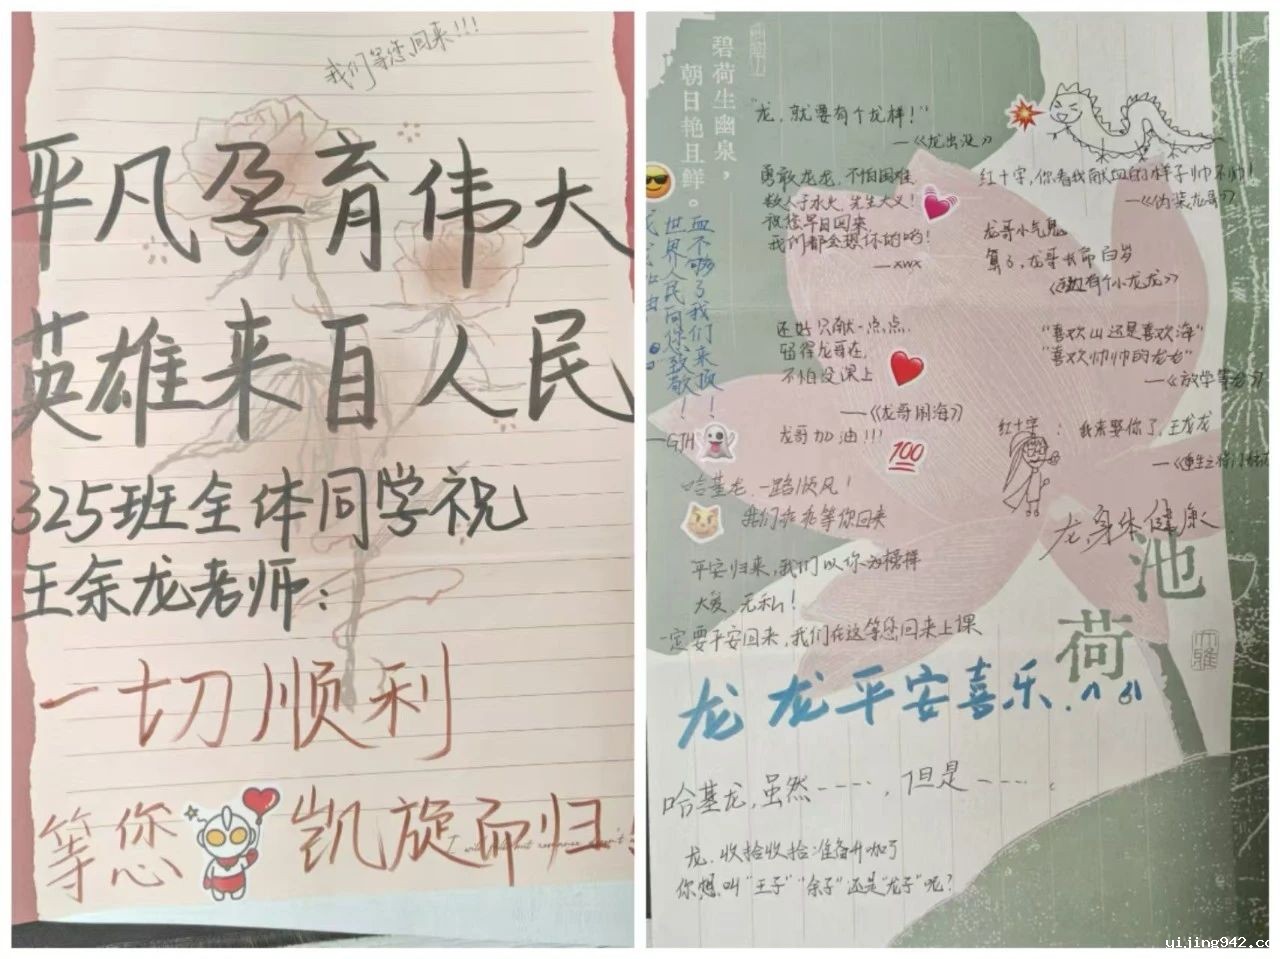 我们等您回来!!!
平凡孕育伟大
英雄来自人民
325班全体同学祝
王余龙老师：
一切顺利
等您
凯旋而归
碧荷生幽泉，
朝日艳且鲜。
"龙，就要有个龙样！"
—《龙出没》
勇敢龙龙，不怕困难
救人于水火，先生大义！
祝您早日回来
我们都会想你的哟！
—xwx
红十字，你看我献血的样子帅不帅！
—《伪装龙哥》
龙哥小气鬼
算了，龙哥长命百岁
有个小龙龙》
血不够了我们来顶！
世界人民向你致敬！
—GJH
还好只献一点点
舍得龙哥在
不怕没课上
—《龙哥闹海》
龙哥加油!!!
100
"喜欢山还是喜欢海"
"喜欢帅帅的龙龙"
—《放学等
红十字：我来娶你了，王龙龙
哈基龙，一路顺风！
我们乖乖等你回来
龙，身体健康
平安归来，我们以你为榜样
大爱，无私！
一定要平安回来，我们在这等您回来上课
池
荷
龙龙平安喜乐.
哈基龙，虽然-----，但是----.
龙，收拾收拾准备升咖了
你想叫"王子""余子"还是"龙子"呢?
yijing942.co